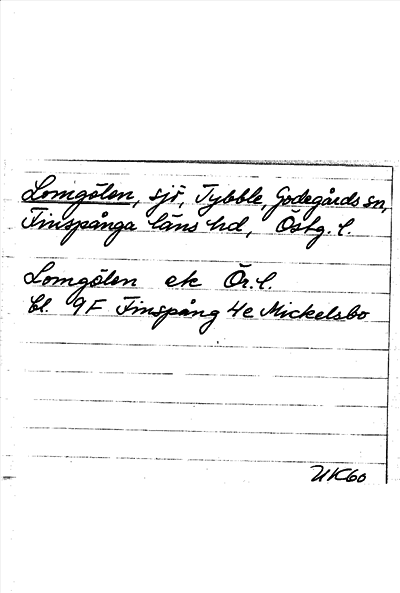 Lomgölen, sjö, Tybble, Godegårds sn,
Finspånga läns hd, Östg. l.
Lomgölen ek Ör. l.
bl. 9F Finspång 4e Mickelsbo
UK60